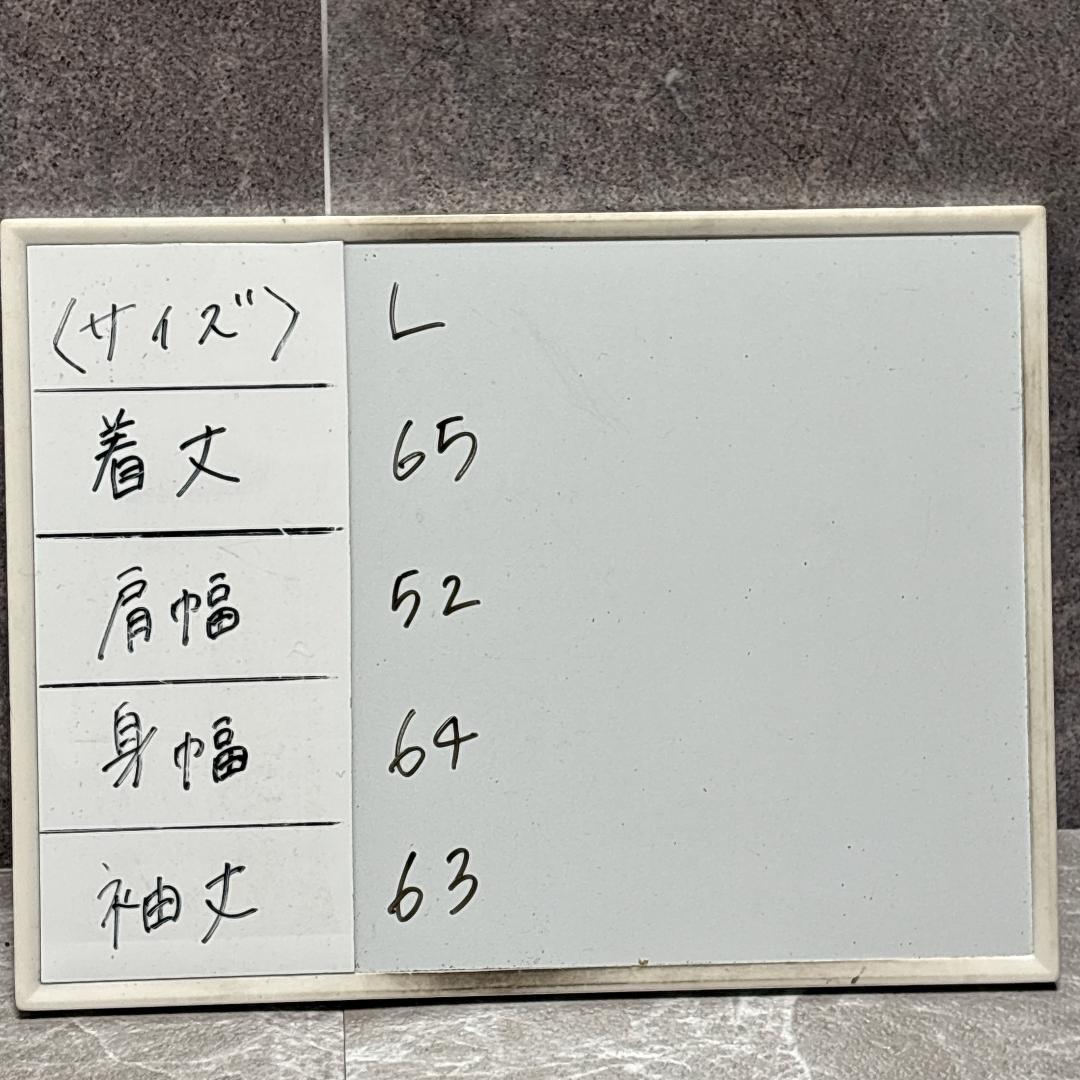 〈サイズ〉 L
着丈 65
肩幅 52
身幅 64
袖丈 63